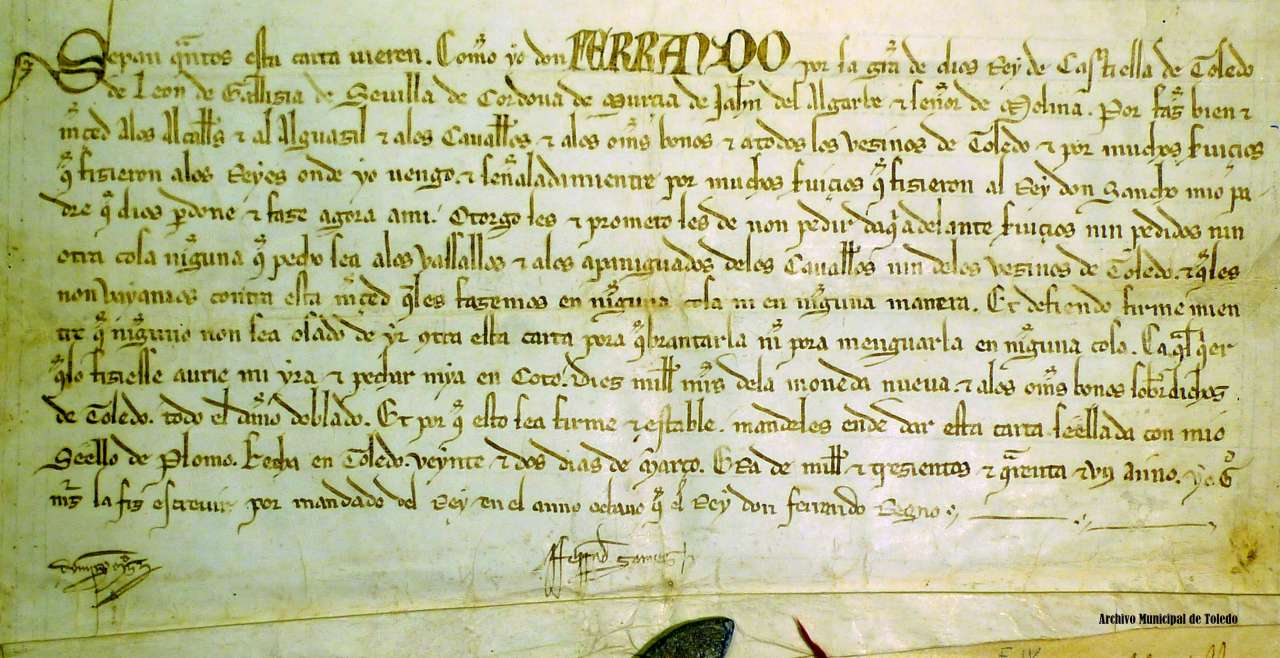 Sepan q̃ntos esta carta uieren. Como yo don FERRANDO por la gr̃a de dios Rey de Castiella de Toledo
de Leon de Gallisia de Seuilla de Cordoua de Murcia de Jahen del Algarbe & sennor de Molina. Por faz̃ bien &
mc̃ed alos Alcałłs & al Alguasil & alos Cauałłos & alos om̃s bonos & atodos los vezinos de Toledo & por muchos seruicios
q̃ fisieron alos Reyes onde yo uengo. & sennaladamientre por muchos seruicios q̃ fisieron al Rey don Sancho mio pa
dre q̃ dios perdone & fase agora ami. Otorgo les & prometo les de non pedir daq̃ adelante seruiçios nin pedidos nin
otra cosa ninguna q̃ pecho sea alos vassallos & alos apaniguados delos Cauałłos nin delos vezinos de Toledo. & q̃les
non vayamos contra esta mc̃ed q̃les fazemos en ninguna cosa ni en ninguna manera. Et defiendo firme mien
tre q̃ ninguno non sea osado de yr contra esta carta pora q̃brantarla nin pora menguarla en ninguna cosa. Ca q̃l q̃er
q̃lo fisiesse aurie mi yra & pechar mya en Coto. Dies mill mr̃s dela moneda nueua & alos om̃s bonos sobredichos
de Toledo. todo el danno doblado. Et por q̃ esto sea firme & estable. mandeles ende dar esta carta seellada con mio
Seello de Plomo. fecha en Toledo. veynte & dos dias de Março. Era de mill & tresientos & q̃renta & vn anno. yo G̃
mr̃s la fiz escreuir por mandado del Rey en el anno ochauo q̃ el Rey don ferrando Regno.
gomes
Archivo Municipal de Toledo